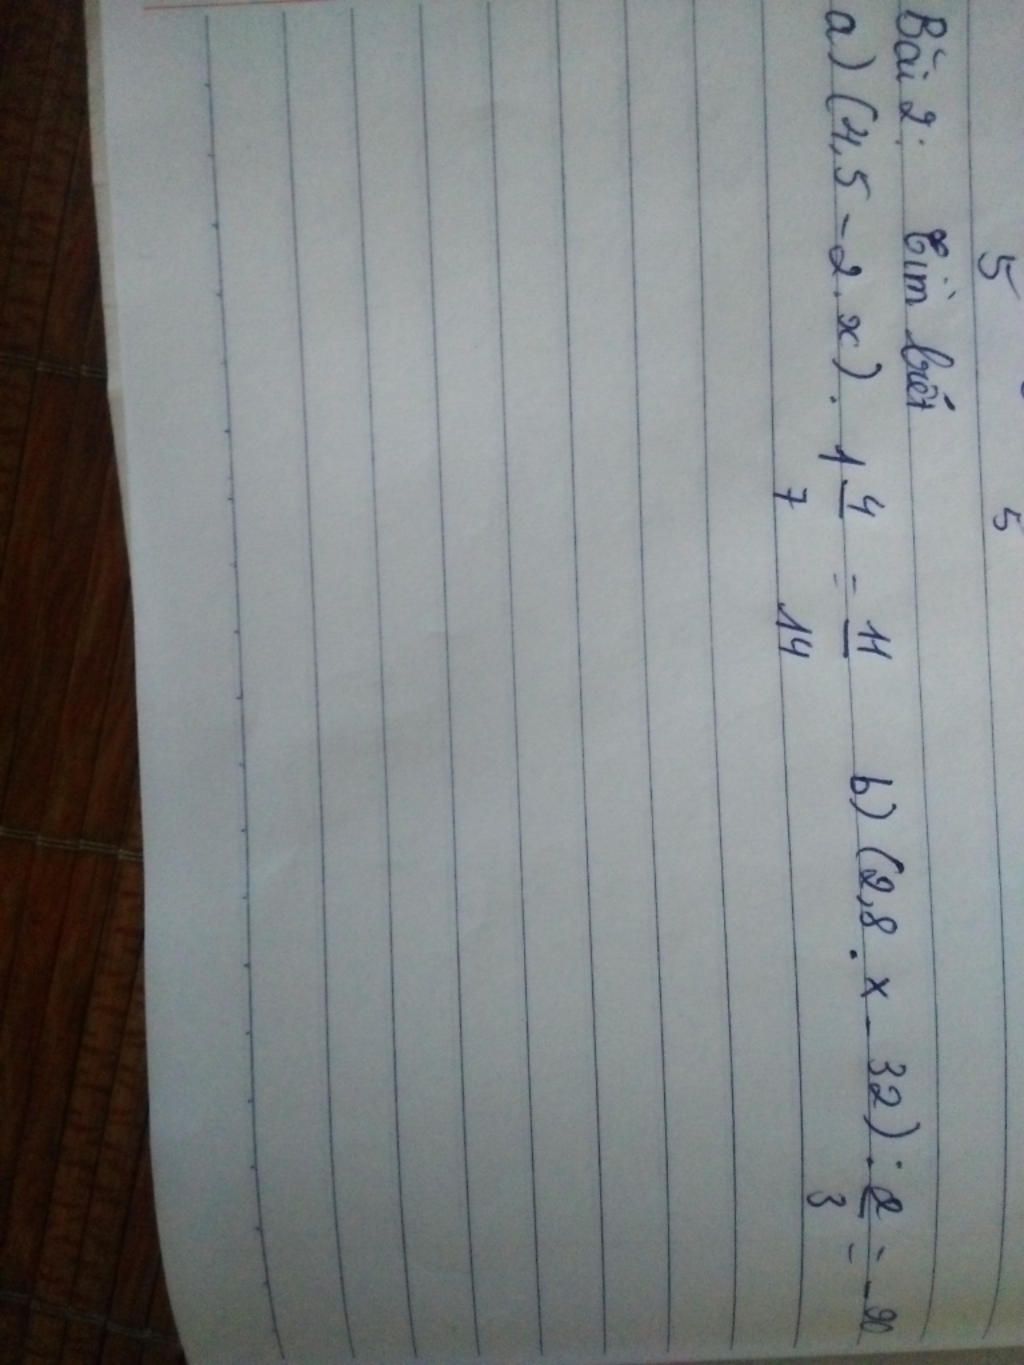 5 5
Bài 2: Tìm biết
a) (4,5 - 2.x) . 1 4/7 = 11/14 b) (2,8 . x - 32) : 2/3 = -90